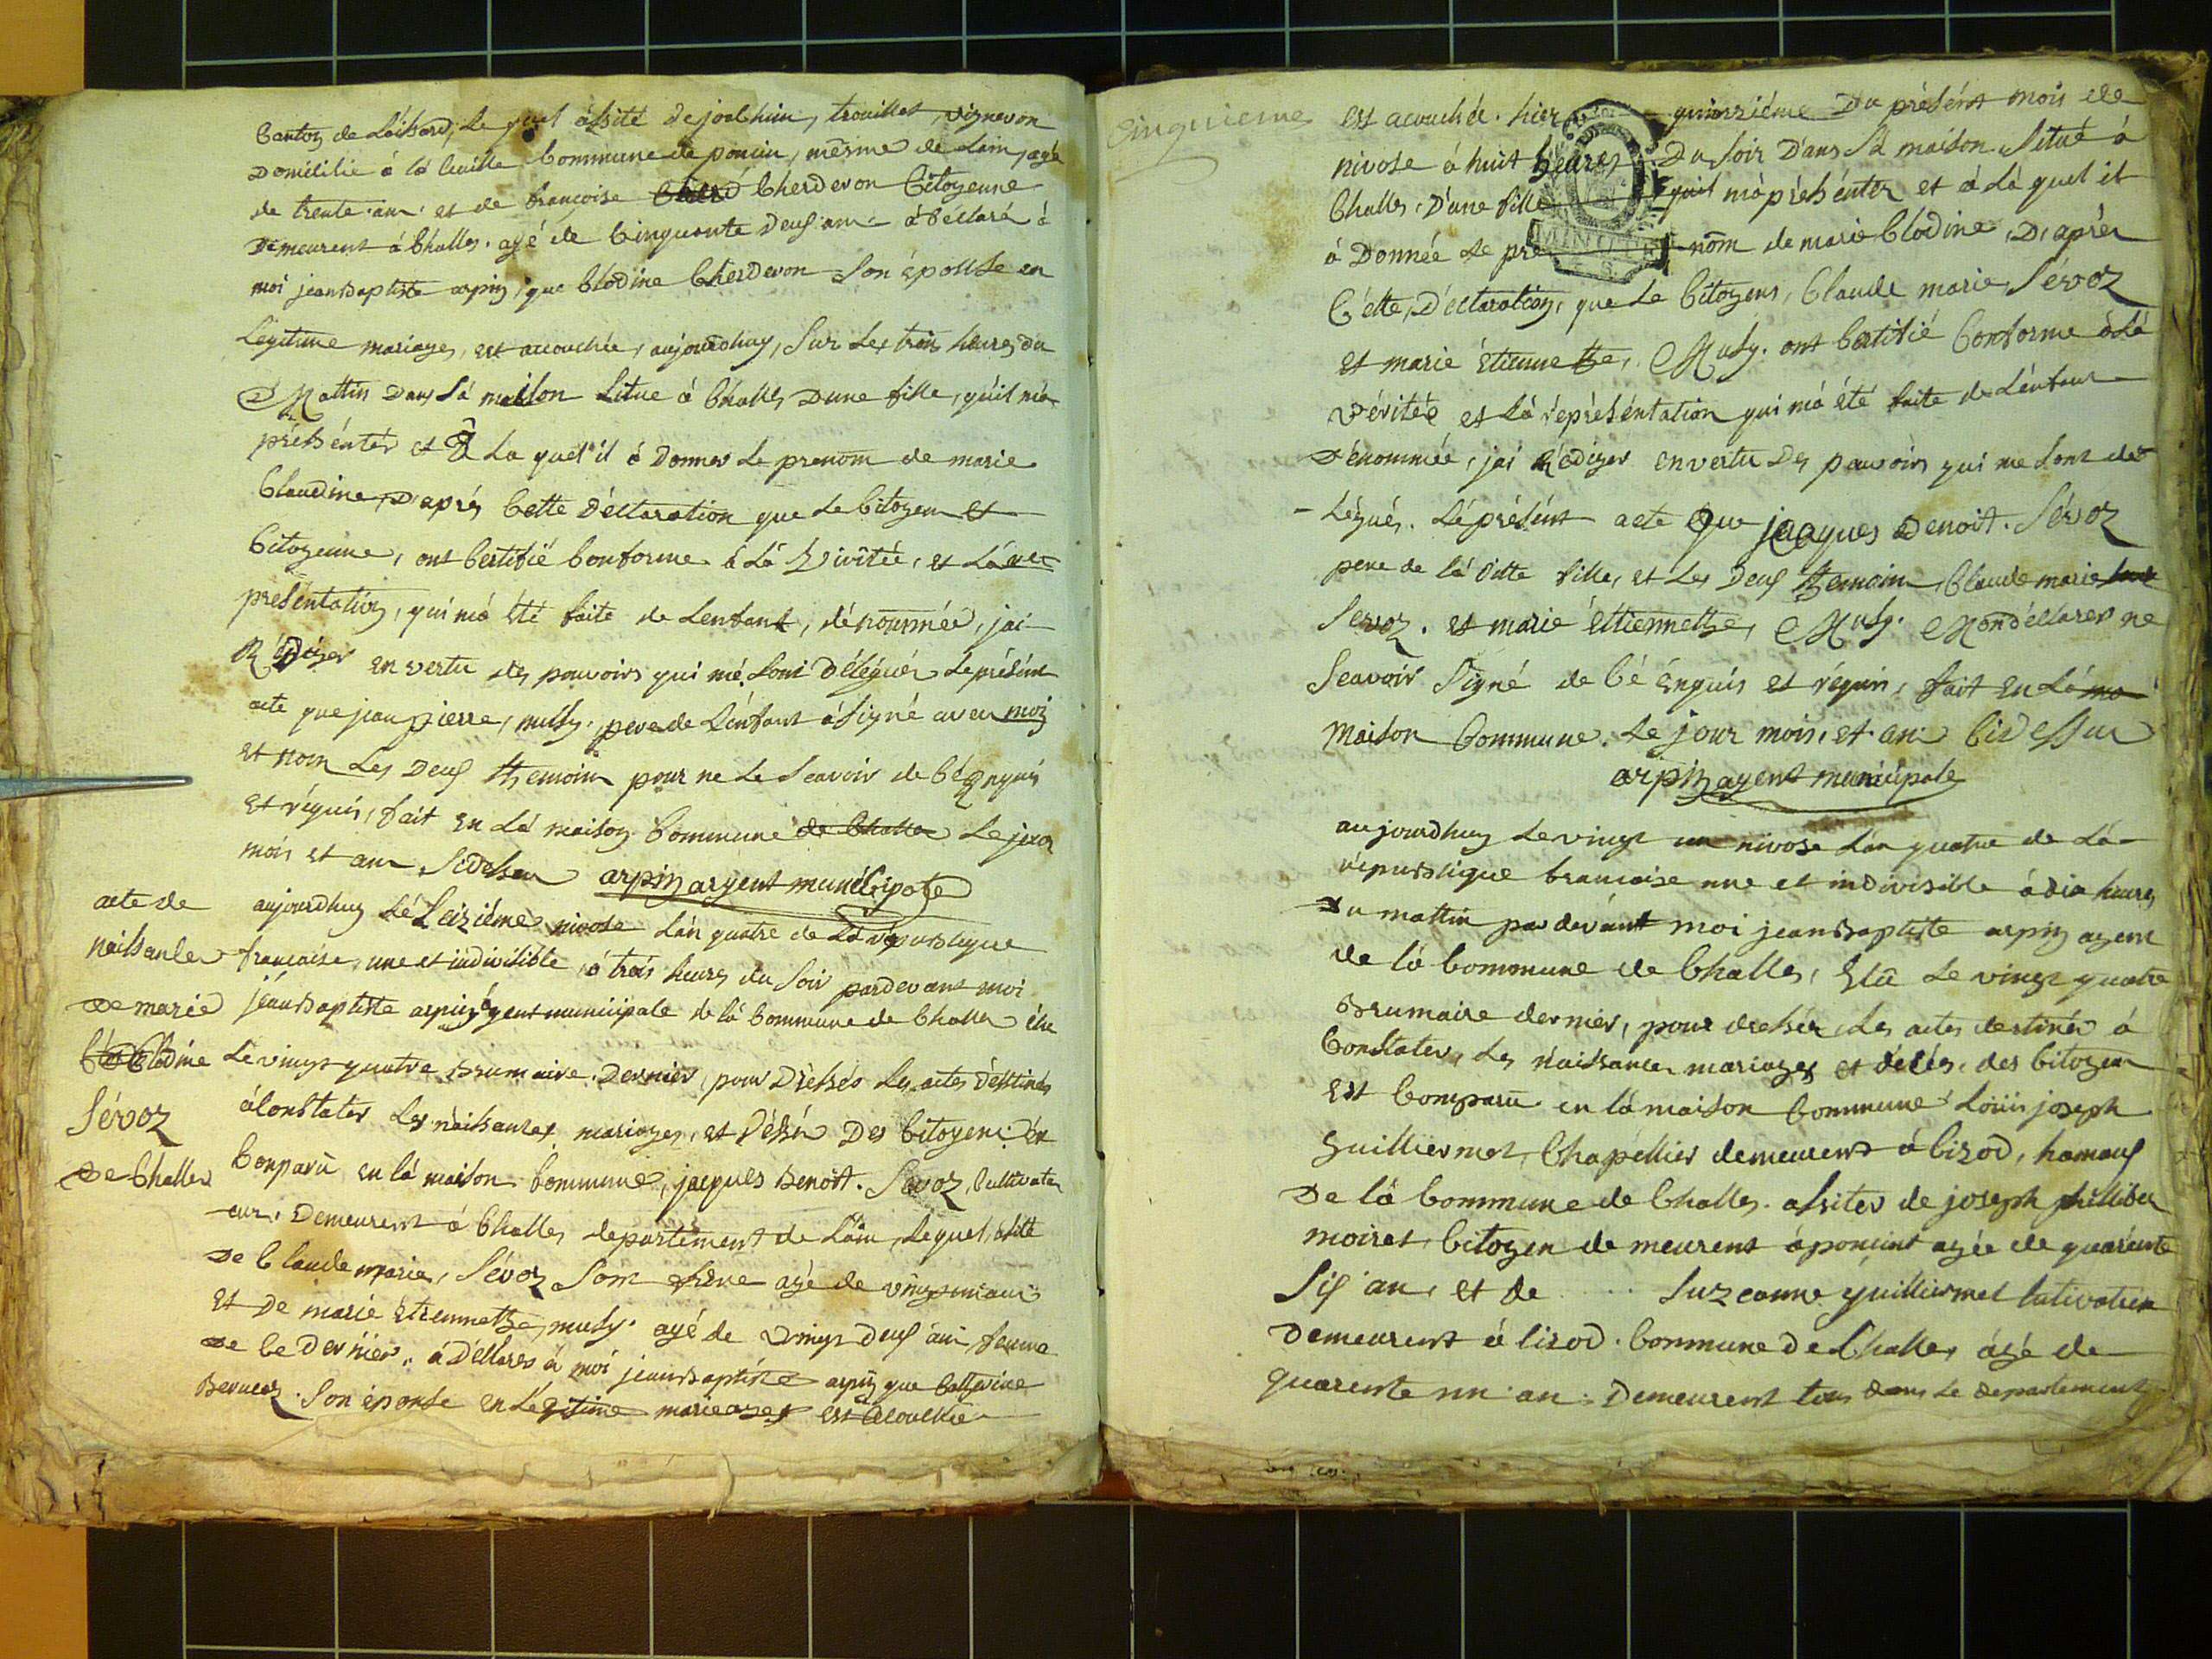 Canton de Loissard, Le quel assité de joachim, trouillet, vigneron
Domicilié à la Cueille Commune de poncin, mesme de Lain, agé
de trente ans et de françoise Cherd Cherderon Citoyenne
Demeurent à Challes. agé de Cinquante Deuf ans à Déclaré à
moi jean Baptiste arpin, que Clodine Cherderon Son épousse en
Legitime mariages, est accouchée, aujourdhuy, Sur Les trois heures du
Mattin Dans sa maison Situe à Challes Dune fille, quil ma
préssentér et à La quel il à Donner Le prenom de marie
Claudine, D'aprés Cette déclaration que Le Citoyen et
Citoyenne, ont Certifié Conforme à La Vérités, et La re
présentation, qui ma été faite de Lenfant, dénommée, jai
Rédiger en vertu des pouvoirs qui me Sont Délégués Le présent
acte que jean pierre, mussy. pere de Lenfant à Signé avec moy
et non Les Deuf themoins pour ne Le Scavoir de Cé enquis
et réquis, fait en La maison Commune de Challes Le jour
mois et ans Sidessus arpin argent municipale
acte de
naissance
de marie
Clodine
Sévoz
de Challes
aujourdhuy Lé Seizième nivose Lan quatre de La république
francaise, une et indivisible, à trois heures du Soir pardevant moi
jean Baptiste arpin agent municipale de la Commune de Challes élu
Le vingt quatre Brumaire Dernier, pour Dréssés Les actes destinés
à Constater Les naissances mariages, et Déssés Des Citoyens. ét
Comparu en la maison Commune, jacques Benoit. Sévoz, Cultivate
eur, Demeurent à Challes departement de Lain, Lequel assité
De Claude marie, Sévoz Son frere agé de vingt un ans
Et De marie Etiennette, mussy. agé de Vingt Deuf ans femme
de Ce Dernier, à Déclarés à moi jean Baptiste arpin que Catherine
Bernard. Son éponse en Legitime marieages est acouchée
Cinquieme
est acouchée. hier quinzième Du présent mois de
nivose à huit heures Du Soir Dans Sa maison Situé à
Challes, D'une fille quil mà préssenter et à La quel il
à Donnée Le pre nom de marie Clodine, D'aprés
Cette, Déclaration, que Le Citoyens, Claude marie, Sévoz
et marie Etiennette, Mussy. ont Certifié Conforme à La
Véritée et La représentation qui ma été faite de Lenfant
Dénommée, jai Rédiger envertu Des pouvoirs qui me Sont de
Légués. Le présent acte Que jacques Benoit. Sévoz
pere de la ditte fille, et Les Deuf themoins Claude marie
Sevoz. et marie éttiennette, Mussy. Mon déclarer ne
Scavoir Signé de Cé Enquis et réquis, fait en La ma
maison Commune. Le jour mois, et an Cidessus
arpin agent municipale
aujourdhuy Le vingt un nivose Lan quatre de La
république francaise une et indivisible à dix heures
Du mattin par devant moi jean Baptiste arpin agent
de la Commune de Challes, Elû Le vingt quatre
Brumaire dernier, pour dressér Les actes destinés à
Constater, Les naissances mariages et décés. des Citoyen
Est Comparu en la maison Commune Loüis joseph
Guilliermet, Chapellier demeurent à Cizod, hamauf
De la Commune de Challes. assités de joseph philliber
moiret, Citoyen de meurent à poncint agée de quarente
Sif an, et de Suzeanne guilliermet Cutivatrice
Demeurent à Cizod. Commune De Challes, âgé de
quarente un an. Demeurent tous dans Le departement